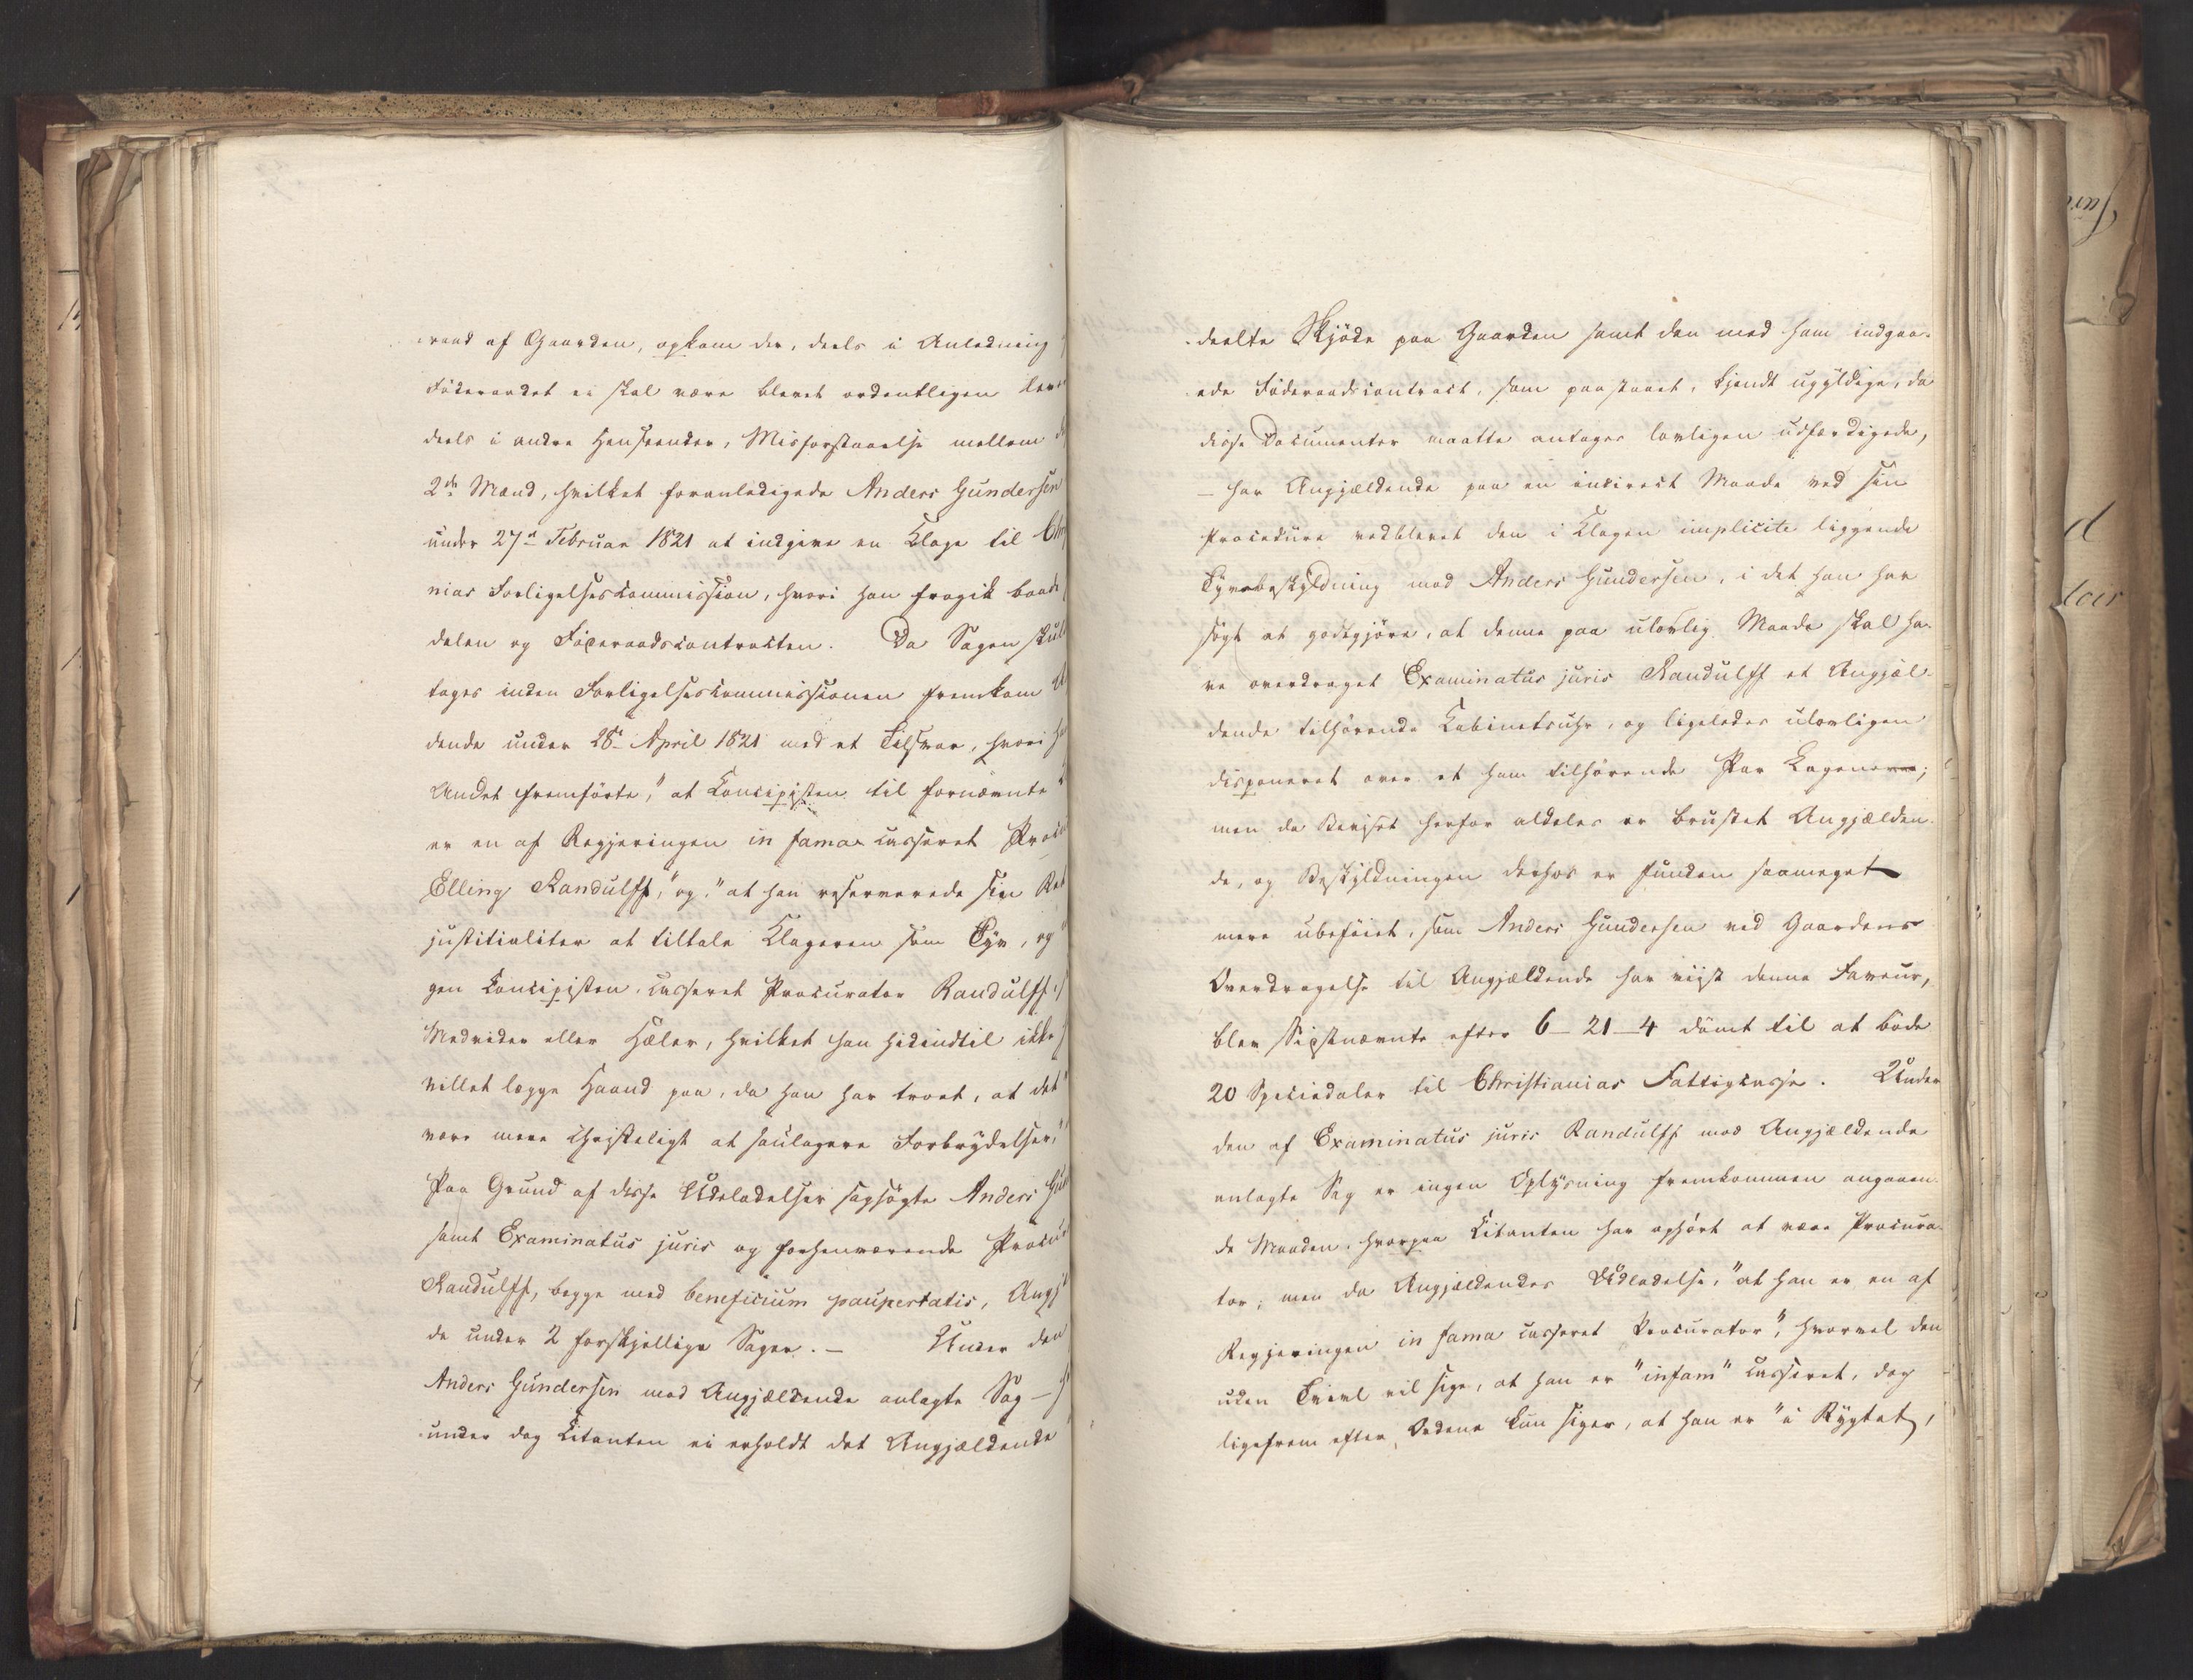 raad af Gaarden, opkom der, deels i Anledning
Föderaadet ei skal være blevet ordentligen lev
deels i andre Henseender, Misforstaaelse mellem d
2de Mænd, hvilket foranledigede Anders Gundersen
under 27de Februar 1821 at indgive en Klage til Chri
nias Forligelsescommission, hvori han fragik baade
delen og Föderaadscontracten. Da Sagen skuld
tages inden Forligelsescommissionen fremkom A
dende under 28de April 1821 med et Tilsvar, hvori ha
Andet fremförte, "at Concipisten til fornævnte
er en af Regjeringen in fama casseret Procu
Elling Randulff," og "at han reserverede sin Ret
justitialiter at tiltale Klageren som Tyv, og
gen Concipisten, casseret Procurator Randulff, s
Medvider eller Hæler, hvilket han hidindtil ikke
villet lægge Haand paa, da han har troet, at det
være mere christeligt at
Paa Grund af disse Udeladelser sagsögte Anders Gun
samt Examinatus juris og forhenværende Procur
Randulff, begge med beneficium paupertatis, Angj
de under 2 forskjellige Sager. – Under den
Anders Gundersen mod Angjældende anlagte Sag –
under dog Citanten ei erholdt det Angjældende
deelte Skjöde paa Gaarden samt den med ham indgaa-
ede Föderaadscontract, som paastaaet, kjendt ugyldige, da
disse Documenter maatte antages lovligen udfærdigede,
– har Angjældende paa en indirect Maade ved sin
Procedüre vedblevet den i Klagen implicite liggende
Tyvebeskyldning mod Anders Gundersen, i det han har
sögt at godtgjöre, at denne paa ulovlig Maade skal ha-
ve overdraget Examinatus juris Randulff et Angjæl-
dende tilhörende Kabinetsuhr, og ligeledes ulovligen
disponeret over et ham tilhörende Par Lagener;
men da Beviset herfor aldeles er brustet Angjælden-
de, og Beskyldningen derhos er funden saameget
mere ubeföiet, som Anders Gundersen ved Gaardens
Overdragelse til Angjældende har viist denne Faveur,
blev Sidstnævnte efter 6–21–4 dömt til at böde
20 Speciedaler til Christianias Fattigcasse. Under
den af Examinatus juris Randulff mod Angjældende
anlagte Sag er ingen Oplysning fremkommen angaaen-
de Maaden, hvorpaa Citanten har ophört at være Procura-
tor; men da Angjældendes Udladelse, "at han er en af
Regjeringen in fama casseret Procurator", hvorvel den
uden Tvivl vil sige, at han er "infam" casseret, dog
ligefrem efter Ordene kun siger, at han er "i Rygtet,